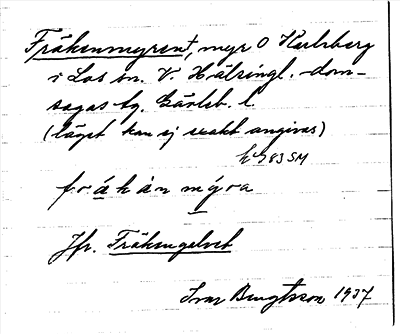 Fräkenmyren†, myr O Karlsberg
i Los sn. V. Hälsingl. dom-
sagas tg. Gävleb. l.
(läget kan ej exakt angivas)
83 SM
frákàn mýra
Jfr. Fräkengelvet
Ivar Bengtsson 1937